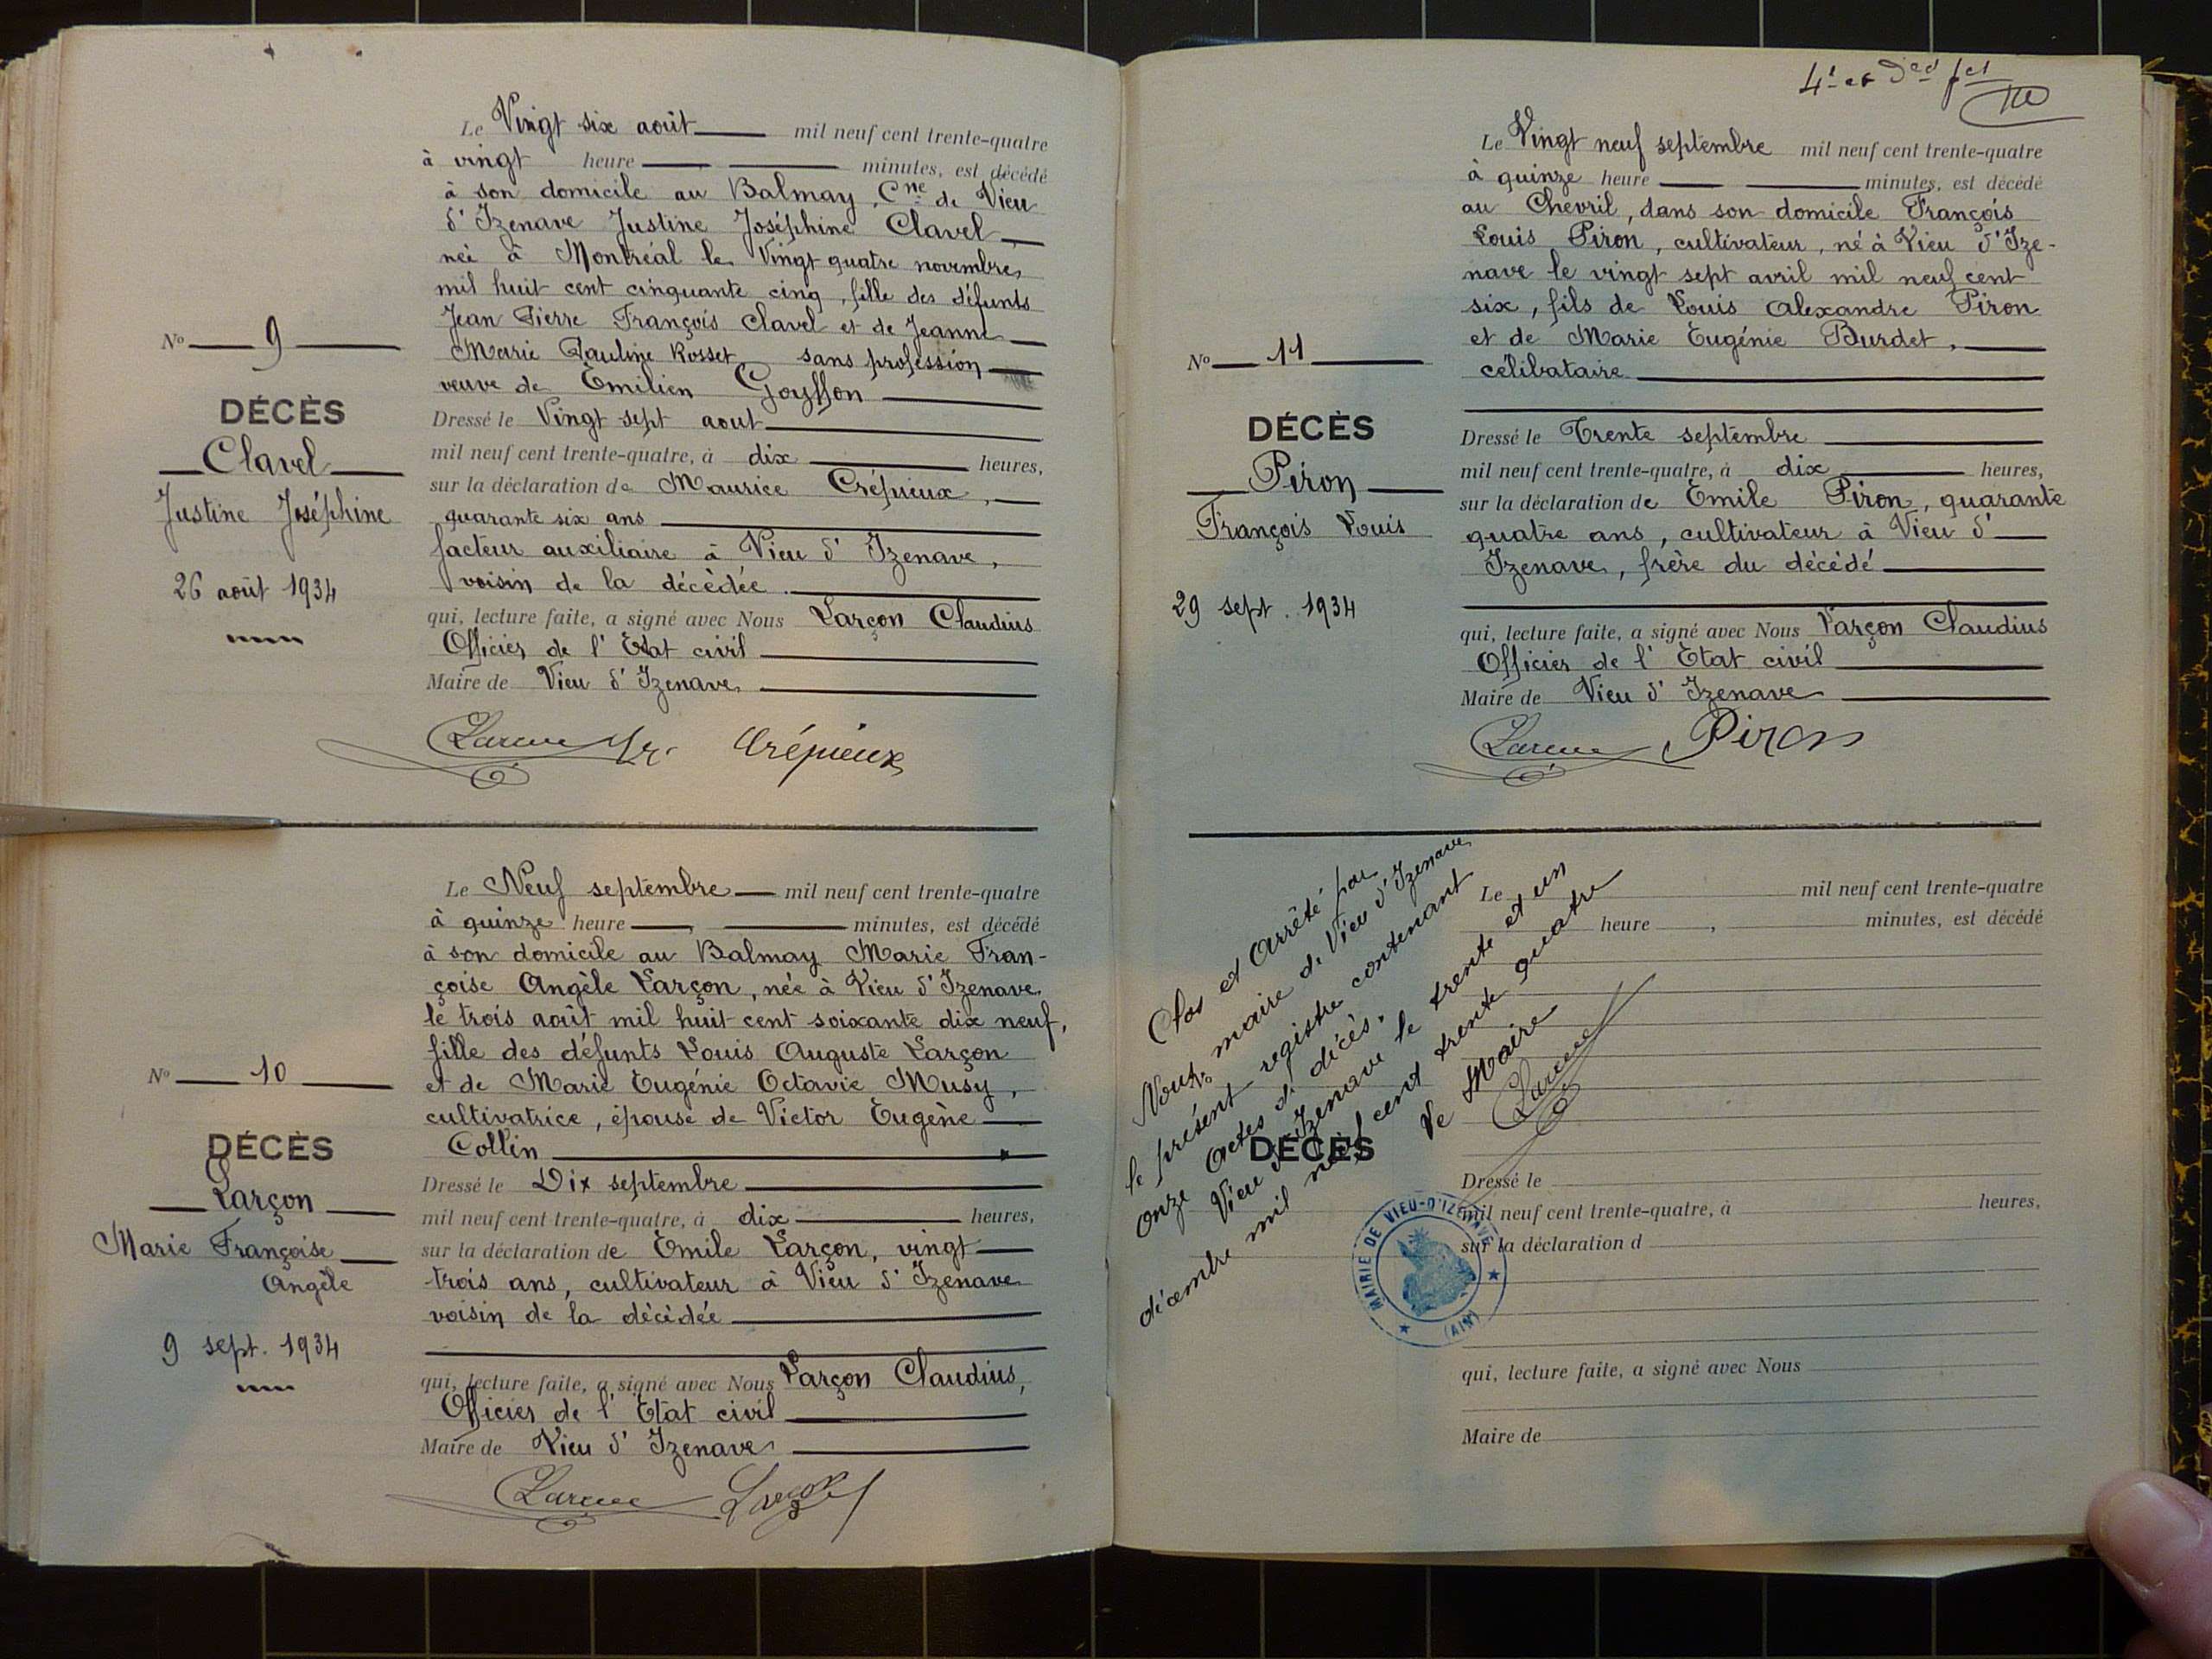 Le Vingt six août mil neuf cent trente-quatre
à vingt heure minutes, est décédé
à son domicile au Balmay, Cne de Vieu
d'Izenave Justine Joséphine Clavel,
née à Montréal le Vingt quatre novembre
mil huit cent cinquante cinq, fille des défunts
Jean Pierre François Clavel et de Jeanne
Marie Pauline Rosset, sans profession
veuve de Émilien Goyffon
Dressé le Vingt sept aout
mil neuf cent trente-quatre, à dix heures,
sur la déclaration de Maurice Crépieux,
quarante six ans
facteur auxiliaire à Vieu d'Izenave,
voisin de la décédée.
qui, lecture faite, a signé avec Nous Larçon Claudius
Officier de l'Etat civil
Maire de Vieu d'Izenave
Crépieux
No 9
DÉCÈS
Clavel
Justine Joséphine
26 août 1934
Le Neuf septembre mil neuf cent trente-quatre
à quinze heure, minutes, est décédé
à son domicile au Balmay Marie Fran-
çoise Angèle Larçon, née à Vieu d'Izenave
le trois août mil huit cent soixante dix neuf,
fille des défunts Louis Auguste Larçon
et de Marie Eugénie Octavie Musy,
cultivatrice, épouse de Victor Eugène
Collin
Dressé le Dix septembre
mil neuf cent trente-quatre, à dix heures,
sur la déclaration de Émile Larçon, vingt
trois ans, cultivateur à Vieu d'Izenave
voisin de la décédée
qui, lecture faite, a signé avec Nous Larçon Claudius,
Officier de l'Etat civil
Maire de Vieu d'Izenave
No 10
DÉCÈS
Larçon
Marie Françoise
Angèle
9 sept. 1934
Le Vingt neuf septembre mil neuf cent trente-quatre
à quinze heure minutes, est décédé
au Chevril, dans son domicile François
Louis Piron, cultivateur, né à Vieu d'Ize-
nave le vingt sept avril mil neuf cent
six, fils de Louis Alexandre Piron
et de Marie Eugénie Burdet,
célibataire
Dressé le Trente septembre
mil neuf cent trente-quatre, à dix heures,
sur la déclaration de Émile Piron, quarante
quatre ans, cultivateur à Vieu d'
Izenave, frère du décédé
qui, lecture faite, a signé avec Nous Larçon Claudius
Officier de l'Etat civil
Maire de Vieu d'Izenave
Piron
No 11
DÉCÈS
Piron
François Louis
29 sept. 1934
Clos et Arrêté par
Nous, maire de Vieu d'Izenave
le présent registre contenant
onze Actes de décès.
Vieu d'Izenave le trente et un
décembre mil neuf cent trente quatre
Le Maire
DÉCÈS
MAIRIE DE VIEU-D'IZENAVE
(AIN)
Le mil neuf cent trente-quatre
heure, minutes, est décédé
Dressé le
mil neuf cent trente-quatre, à heures,
sur la déclaration d
qui, lecture faite, a signé avec Nous
Maire de